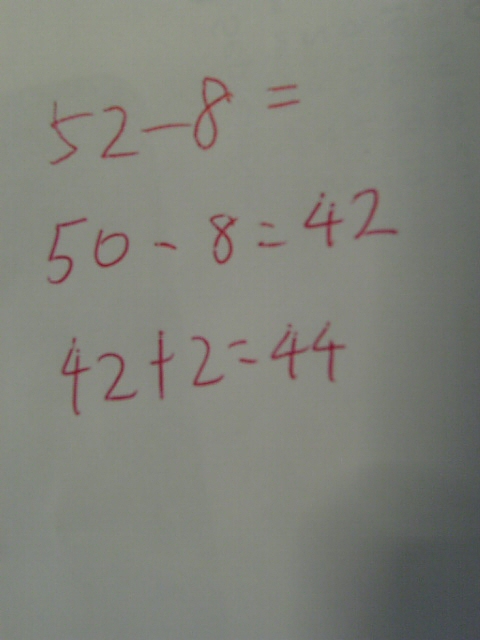 52-8=
50-8=42
42+2=44